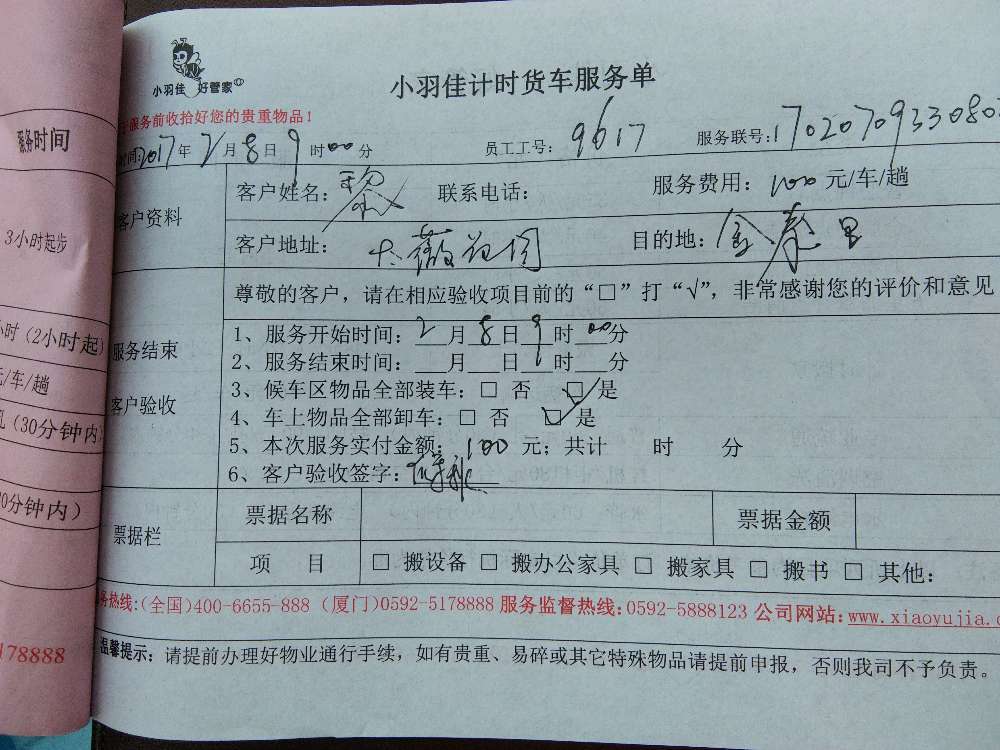 小羽佳 好管家
小羽佳计时货车服务单
服务前收拾好您的贵重物品！
时间:2017年2月8日9时00分 员工工号：9617 服务联号:1702070933080
客户资料
客户姓名：黎 联系电话： 服务费用：100元/车/趟
客户地址： 大薇花园 目的地：金泰里
尊敬的客户，请在相应验收项目前的“□”打“√”，非常感谢您的评价和意见
服务结束
客户验收
1、服务开始时间：2月8日9时00分
2、服务结束时间：___月___日___时___分
3、候车区物品全部装车：□ 否 ☑ 是
4、车上物品全部卸车：□ 否 ☑ 是
5、本次服务实付金额：100元；共计 时 分
6、客户验收签字：
票据栏
票据名称 票据金额
项 目 □ 搬设备 □ 搬办公家具 □ 搬家具 □ 搬书 □ 其他：
务热线:(全国)400-6655-888 (厦门)0592-5178888 服务监督热线:0592-5888123 公司网站:www.xiaoyujia.c
温馨提示：请提前办理好物业通行手续，如有贵重、易碎或其它特殊物品请提前申报，否则我司不予负责。
服务时间
3小时起步
小时（2小时起）
元/车/趟
（30分钟内）
0分钟内）
178888